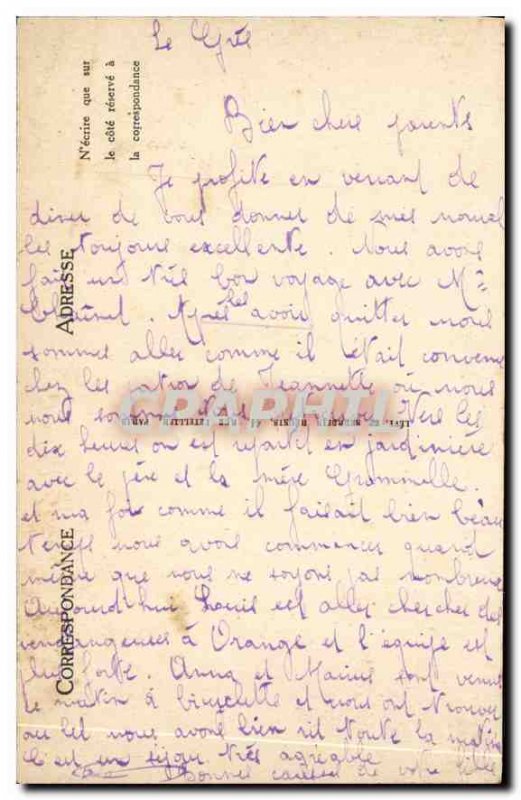 Le Grès
Bien chers parents
Je profite en versant de
diner de vous donner de mes nouvel
les toujours excellente. Nous avons
fait un très bon voyage avec Mme
Après les avoir quitter nous
sommes alles comme il était convenu
chez les de Jeannette où nous
nous sommes Vers les
dix heures on est repartit en jardinière
avec le père et la mère Grammelle.
et ma foi comme il faisait bien beau
temps nous avons commences quand
même que nous ne soyons pas nombreux
Aujourd'hui Louis est alles chercher des
vendangeuses à Orange et l'équipe est
plus forte. Anna et Marius sont venus
le matin à bicyclette et nous ont trouver
au lit nous avons bien rit toute la matin
C'est un séjour très agréable
Bonnes caresses de votre fille
N'écrire que sur
le côté réservé à
la correspondance
ADRESSE
CORRESPONDANCE